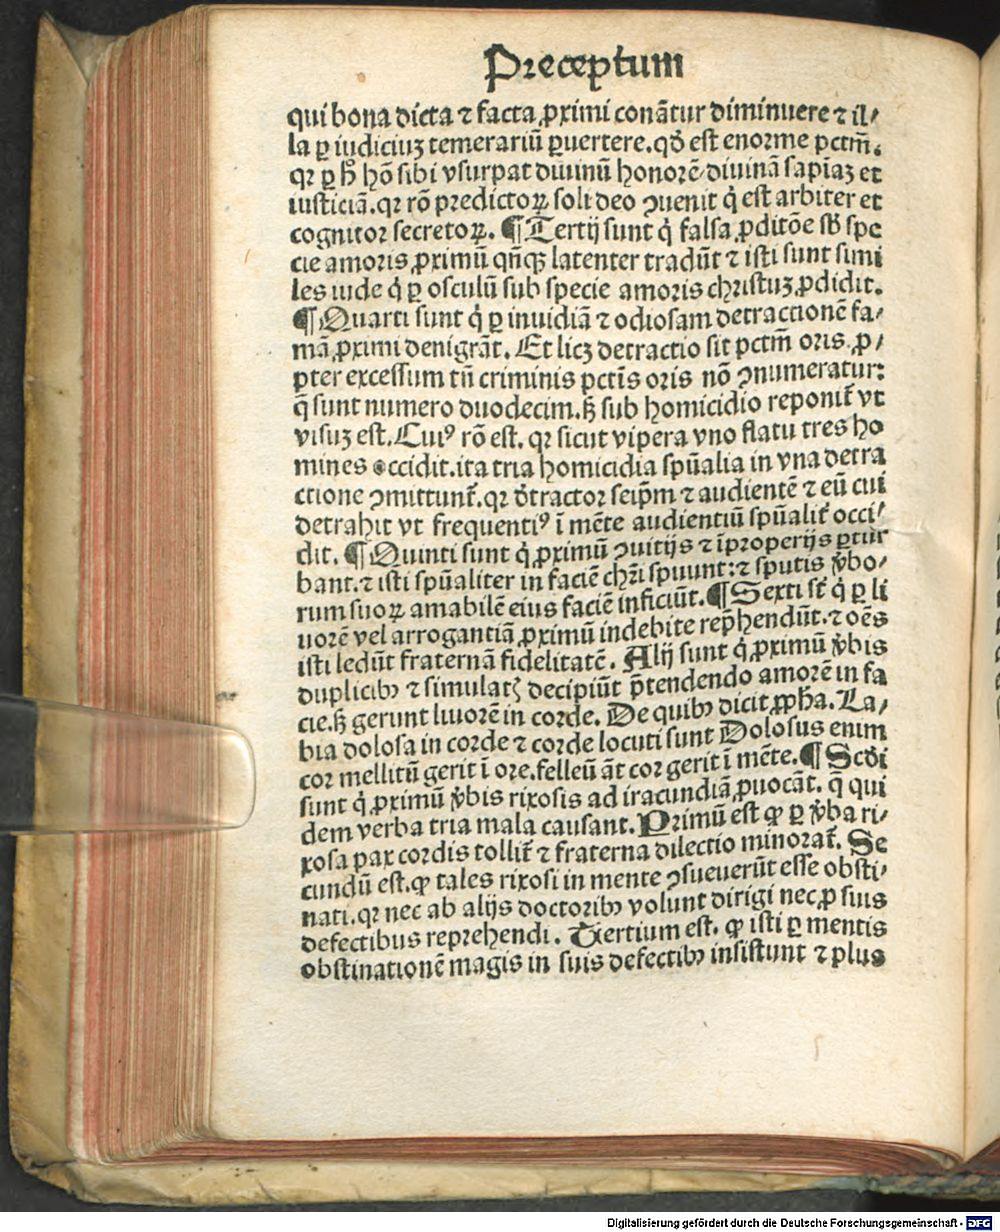 Preceptum
qui bona dicta ⁊ facta ꝓximi conãtur diminuere ⁊ il⸗
la ꝑ iudiciuʒ temerariũ ꝑuertere. qđ est enorme pctm̃.
qꝛ ꝑ ħ hõ sibi vsurpat diuinũ honorẽ diuinã sapĩaʒ et
iusticiã. qꝛ rõ predictoꝝ soli deo ↄuenit q̇ est arbiter et
cognitor secretoꝝ. ¶ Tertij sunt q̇ falsa ꝓditõe sb̃ spe
cie amoris ꝓximũ qñqꝫ latenter tradũt ⁊ isti sunt simi
les iude q̇ ꝑ osculũ sub specie amoris christuʒ ꝓdidit.
¶ Quarti sunt q̇ ꝑ inuidiã ⁊ odiosam detractionẽ fa⸗
mã ꝓximi denigrãt. Et licʒ detractio sit pctm̃ oris ꝓ⸗
pter excessum tñ criminis pctĩs oris nõ ↄnumeratur:
q̃ sunt numero duodecim. ß sub homicidio reponit̃ vt
visuʒ est. Cuiꝰ rõ est. qꝛ sicut vipera vno flatu tres ho
mines occidit. ita tria homicidia spũalia in vna detra
ctione ↄmittunt̃. qꝛ đtractor seip̃m ⁊ audientẽ ⁊ eũ cui
detrahit vt frequentiꝰ ĩ mẽte audientiũ spũalit̃ occi⸗
dit. ¶ Quinti sunt q̇ ꝓximũ ↄuitijs ⁊ ĩproperijs ꝑtur
bant. ⁊ isti spũaliter in faciẽ chr̃i spuunt: ⁊ sputis ṽbo⸗
rum suoꝝ amabilẽ eius faciẽ inficiũt. ¶ Sexti st̃ q̇ ꝑ li
uorẽ vel arrogantiã ꝓximũ indebite rep̃hendũt. ⁊ oẽs
isti ledũt fraternã fidelitatẽ. Alij sunt q̇ ꝓximũ ṽbis
duplicibꝰ ⁊ simulatꝭ decipiũt p̃tendendo amorẽ in fa
cie. ß gerunt liuorẽ in corde. De quibꝰ dicit ꝓp̃ha. La⸗
bia dolosa in corde ⁊ corde locuti sunt Dolosus enim
cor mellitũ gerit ĩ ore. felleũ ãt cor gerit ĩ mẽte. ¶ Scđi
sunt q̇ ꝓximũ ṽbis rixosis ad iracundiã ꝓuocãt. q̃ qui
dem verba tria mala causant. Primũ est ꝙ ꝑ ṽba ri⸗
xosa pax cordis tollit̃ ⁊ fraterna dilectio minorat̃. Se
cundũ est. ꝙ tales rixosi in mente ↄsueuerũt esse obsti⸗
nati. qꝛ nec ab alijs doctoribꝰ volunt dirigi nec ꝓ suis
defectibus reprehendi. Tertium est. ꝙ isti ꝑ mentis
obstinationẽ magis in suis defectibꝰ insistunt ⁊ plus
Digitalisierung gefördert durch die Deutsche Forschungsgemeinschaft - DFG